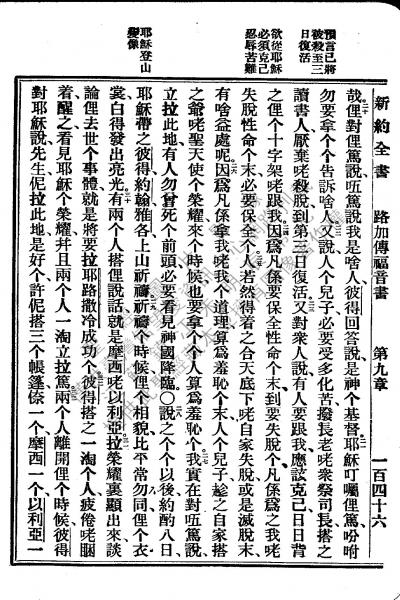 新約全書　路加傳福音書　第九章　一百四十六
預言已將
被殺至三
日復活
欲從耶穌
必須克己
忍辱苦難
耶穌登山
變像
哉、俚對俚篤說、伍篤說我是啥人、彼得回答說、是神个基督、耶穌叮囑俚篤、吩咐
勿要拿个个告訴啥人、又說、人个兒子必要受多化苦、撥長老咾衆祭司長搭之
讀書人厭棄咾殺脫、到第三日復活、又對衆人說、有人要跟我、應該克己、日日背
之俚个十字架咾跟我、因爲凡係要保全性命个末、到要失脫个、凡係爲之我咾
失脫性命个末、必要保全个、人若然得着之合天底下、咾自家失脫、或是滅脫末、
有啥益處呢、因爲凡係拿我咾我个道理算爲羞恥个末、人个兒子趁之自家搭
之爺咾聖天使个榮耀來个時候、也要拿个个人算爲羞恥个、我實在對伍篤說、
立拉此地有人勿曾死个前頭、必要看見神國降臨○說之个个以後、約酌八日、
耶穌帶之彼得約翰雅各上山祈禱、祈禱个時候、俚个相貌比平常勿同、俚个衣
裳白得發出亮光、有兩个人搭俚說話、就是摩西咾以利亞、拉榮耀裏顯出來、談
論俚去世个事體、就是將要拉耶路撒冷成功个、彼得搭之一淘个人疲倦咾瞓
着、醒之看見耶穌个榮耀、幷且兩个人一淘立拉篤、兩个人離開俚个時候、彼得
對耶穌說、先生、伲拉此地是好个、許伲搭三个帳篷、傣一个、摩西一个、以利亞一